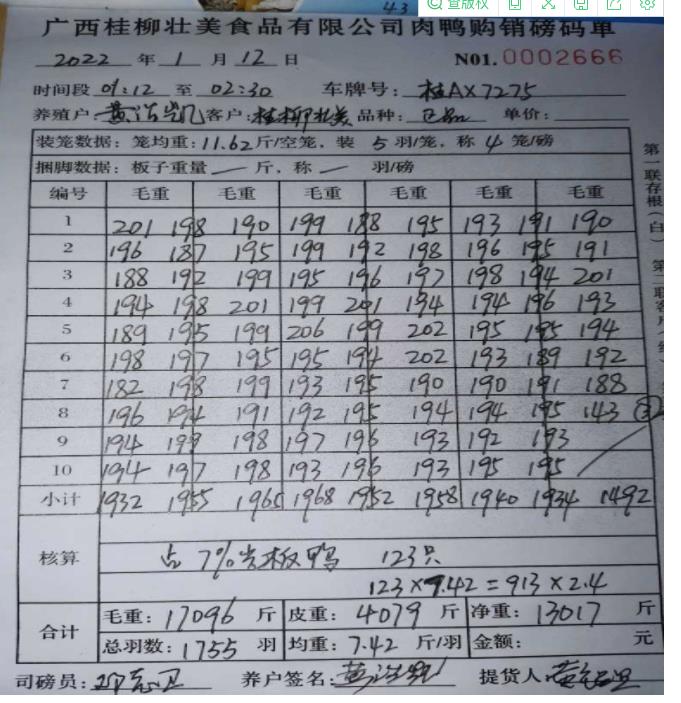 43
查版权
广西桂柳壮美食品有限公司肉鸭购销磅码单
2022 年 1 月 12 日 N01.0002666
时间段 01:12 至 02:30 车牌号: 桂AX7275
养殖户: 客户: 桂柳壮美 品种: 单价:
装笼数据: 笼均重: 11.62 斤/空笼, 装 5 羽/笼, 称 4 笼/磅
捆脚数据: 板子重量 — 斤, 称 — 羽/磅
编号 毛重 毛重 毛重 毛重 毛重 毛重
1 201 198 190 199 188 195 193 191 190
2 196 187 195 199 192 198 196 195 191
3 188 192 199 195 196 197 198 194 201
4 194 198 201 199 201 194 194 196 193
5 189 195 199 206 199 202 195 195 194
6 198 197 195 195 194 202 193 189 192
7 182 198 199 193 195 190 190 191 188
8 196 194 191 192 195 194 194 195 143 ③
9 194 198 198 197 196 193 192 193
10 194 197 198 193 196 193 195 195
小计 1932 1955 1965 1968 1952 1958 1940 1934 1492
核算 占 7% 板鸭 123只
123 × 7.42 = 913 × 2.4
合计 毛重: 17096 斤 皮重: 4079 斤 净重: 13017 斤
总羽数: 1755 羽 均重: 7.42 斤/羽 金额: 元
司磅员: 养户签名: 提货人:
第一联存根(白) 第二联客户